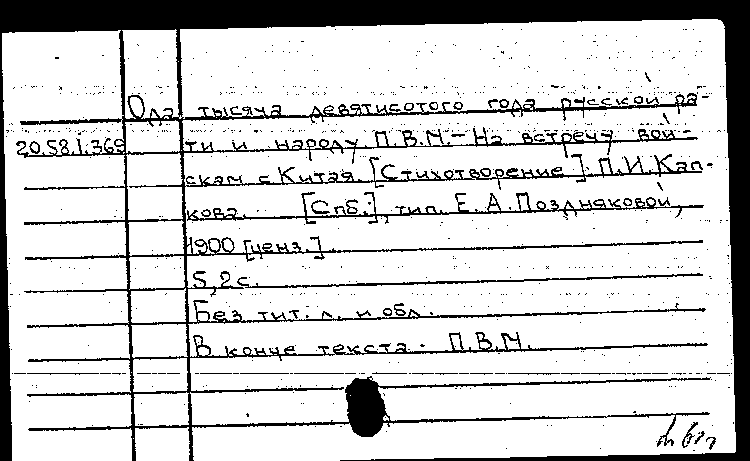 Ода тысяча девятисотого года русской ра-
20.58.1.369 ти и народу П.В.М. - На встречу вой-
скам с Китая. [Стихотворение]. П.И. Кап-
кова. [Спб.], тип. Е.А. Поздняковой,
1900 [ценз.].
5,2 с.
Без тит. л. и обл.
В конце текста. П.В.М.